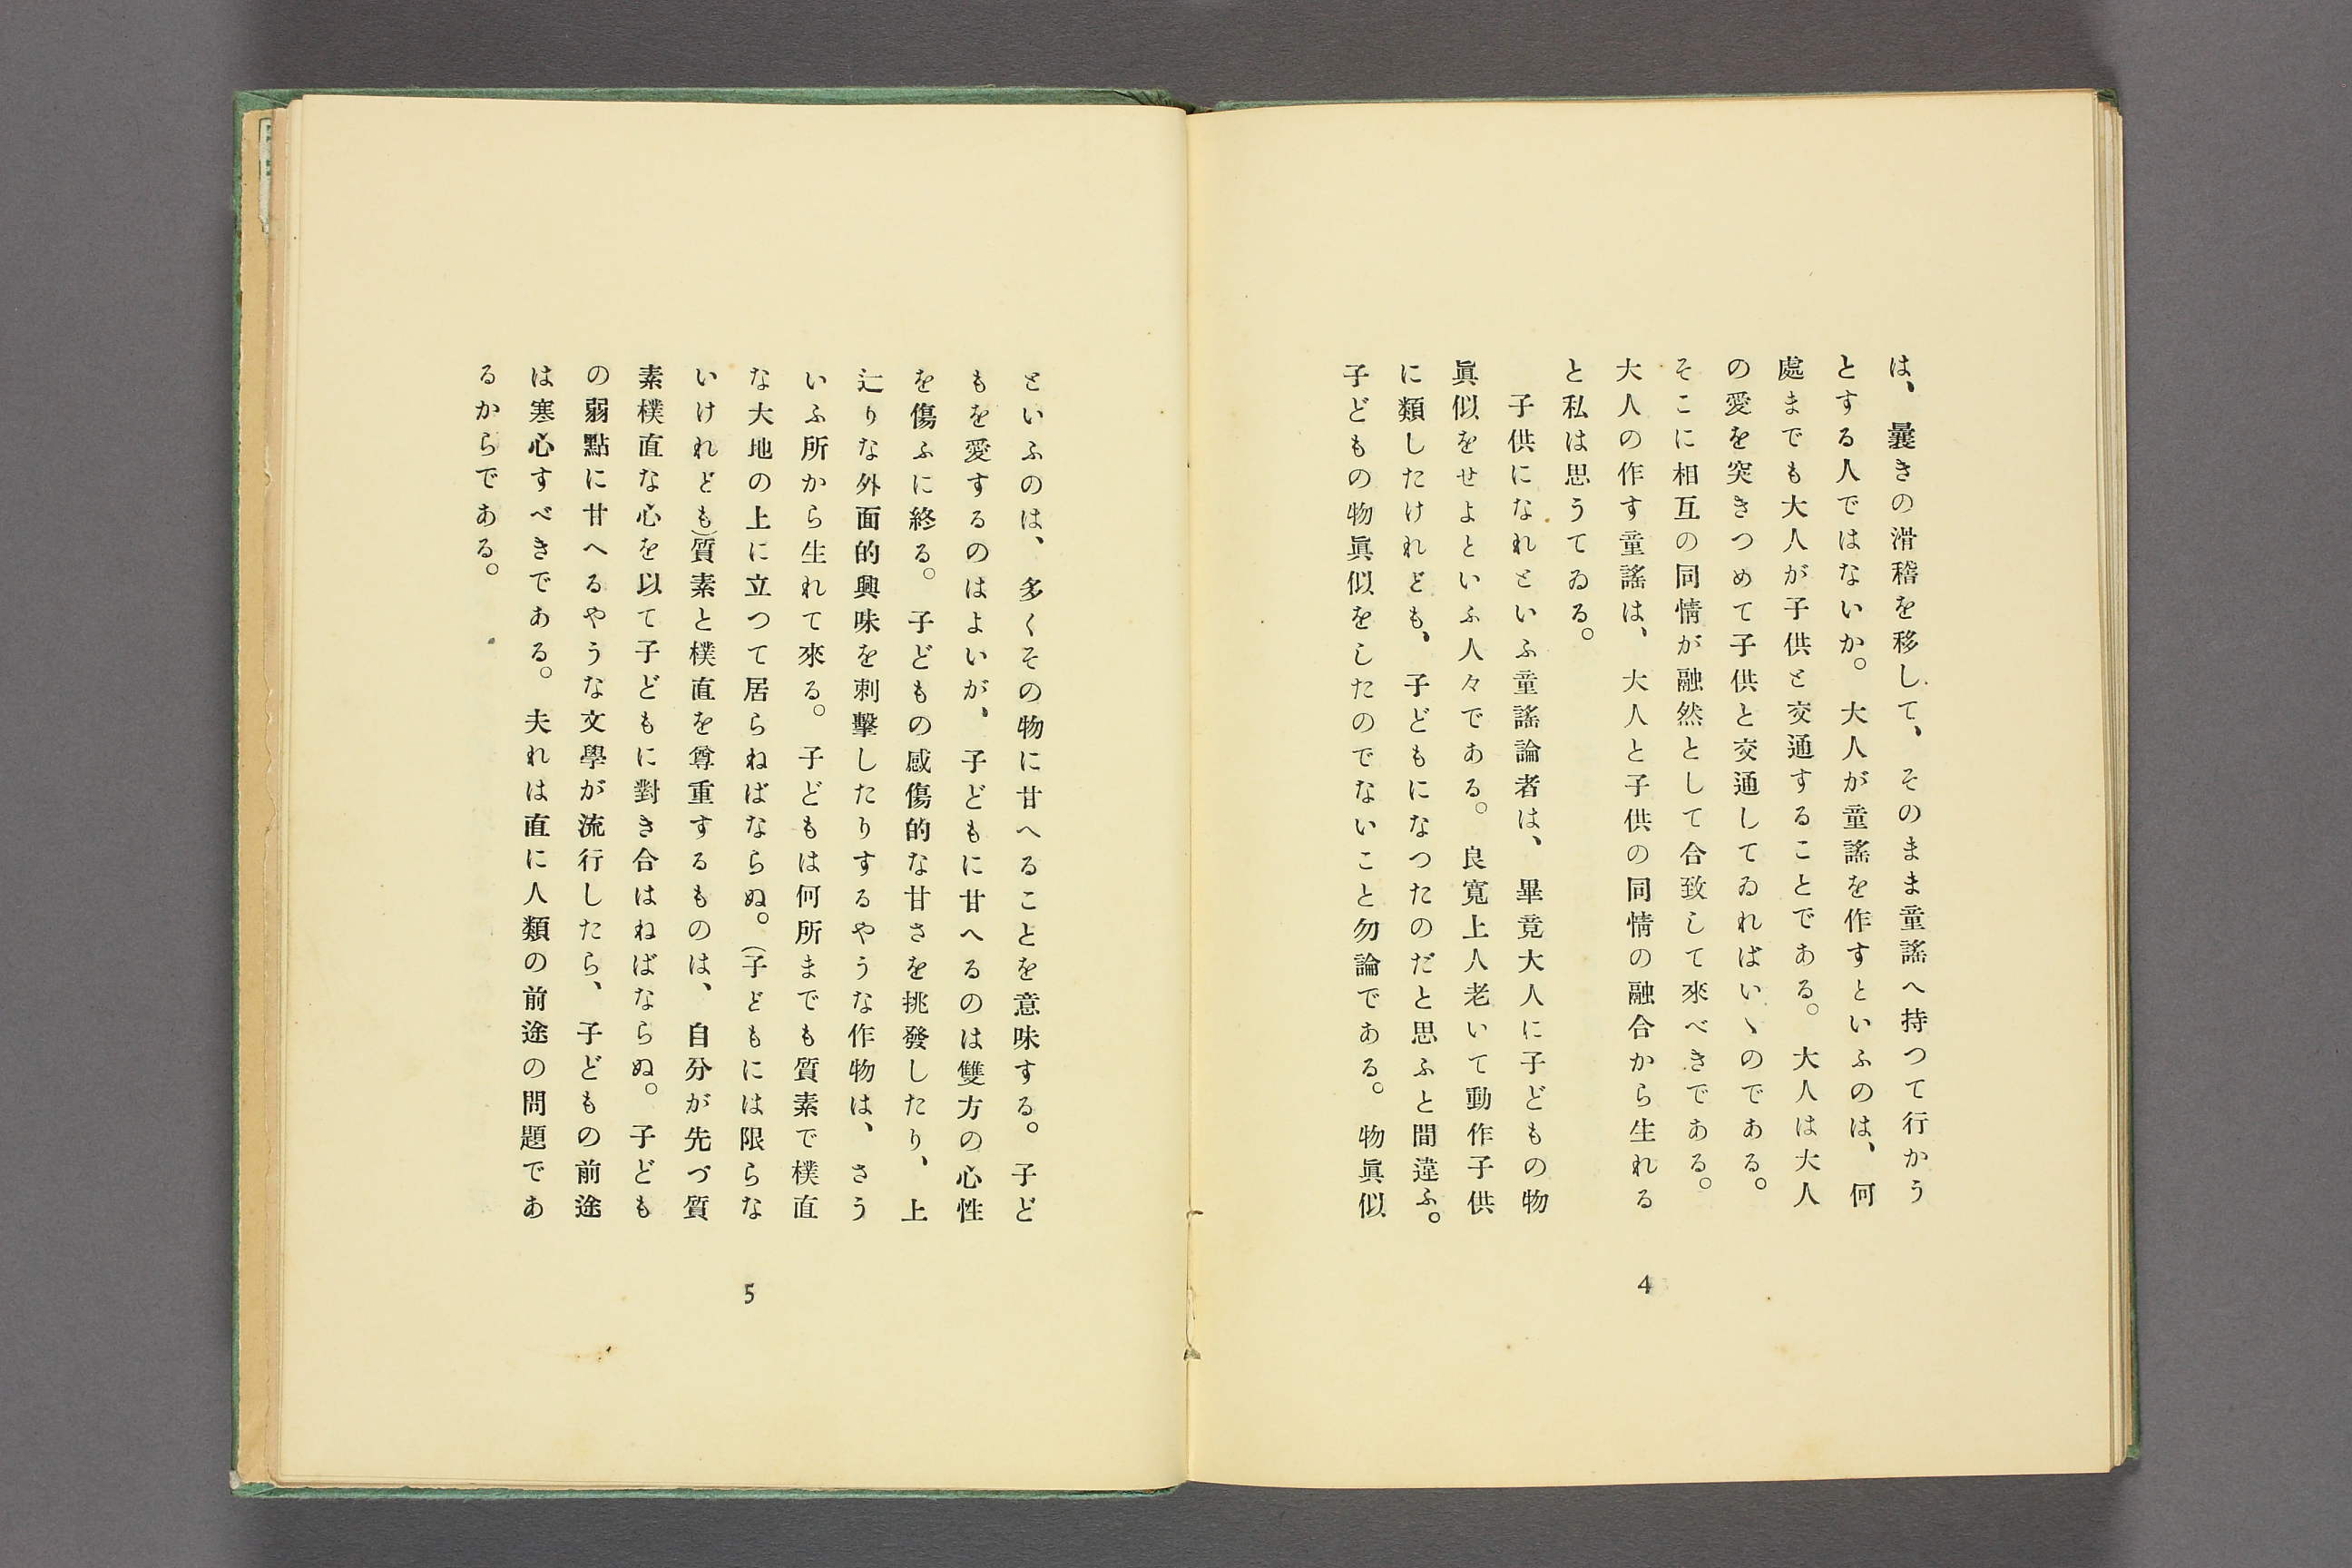 は、曩きの滑稽を移して、そのまま童謠へ持つて行かう
とする人ではないか。大人が童謠を作すといふのは、何
處までも大人が子供と交通することである。大人は大人
の愛を突きつめて子供と交通してゐればいゝのである。
そこに相互の同情が融然として合致して來べきである。
大人の作す童謠は、大人と子供の同情の融合から生れる
と私は思うてゐる。
子供になれといふ童謠論者は、畢竟大人に子どもの物
眞似をせよといふ人々である。良寬上人老いて動作子供
に類したけれども、子どもになつたのだと思ふと間違ふ。
子どもの物眞似をしたのでないこと勿論である。物眞似
4
といふのは、多くその物に甘へることを意味する。子ど
もを愛するのはよいが、子どもに甘へるのは雙方の心性
を傷ふに終る。子どもの感傷的な甘さを挑發したり、上
辷りな外面的興味を刺擊したりするやうな作物は、さう
いふ所から生れて來る。子どもは何所までも質素で樸直
な大地の上に立つて居らねばならぬ。(子どもには限らな
いけれども)質素と樸直を尊重するものは、自分が先づ質
素樸直な心を以て子どもに對き合はねばならぬ。子ども
の弱點に甘へるやうな文學が流行したら、子どもの前途
は寒心すべきである。夫れは直に人類の前途の問題であ
るからである。
5